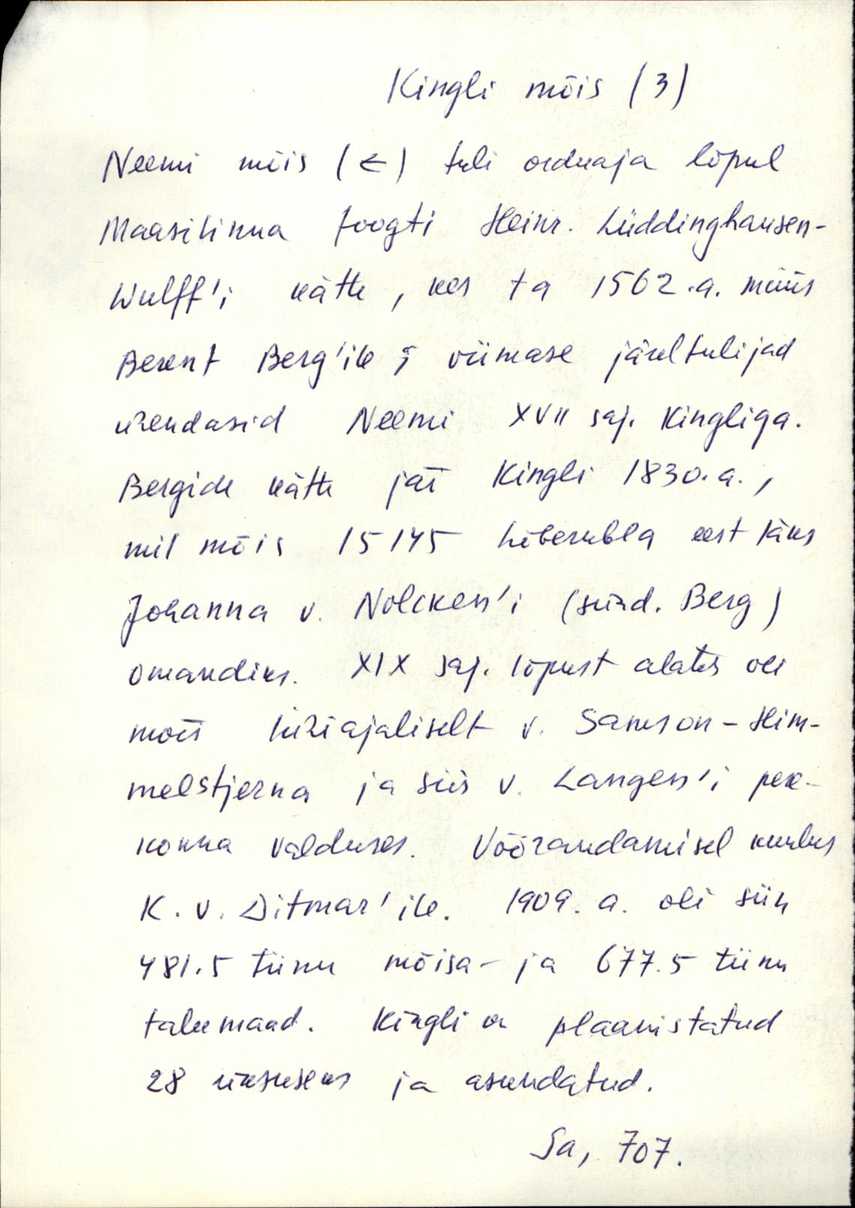 Kingli mõis (3)
Neemi mõis (←) tuli orduaja lõpul
Maasilinna foogti Heinr. Lüddinghausen-
Wulff'i kätte, kes ta 1562.a. müüs
Berent Berg'ile; viimase järeltulijad
ühendasid Neemi XVII saj. Kingliga.
Bergide kätte jäi Kingli 1830.a.,
mil mõis 15145 hõberubla eest läks
Johanna v. Nolcken'i (sünd. Berg)
omandiks. XIX saj. lõpust alates oli
mõis lühiajaliselt v. Samson-Him-
melstjerna ja siis v. Langen'i pere-
konna valduses. Võõrandamisel kuulus
K. v. Ditmar'ile. 1909. a. oli siin
481.5 tiinu mõisa- ja 677.5 tiinu
talumaad. Kingli on plaanistatud
28 üksuseks ja asundatud.
Sa, 707.